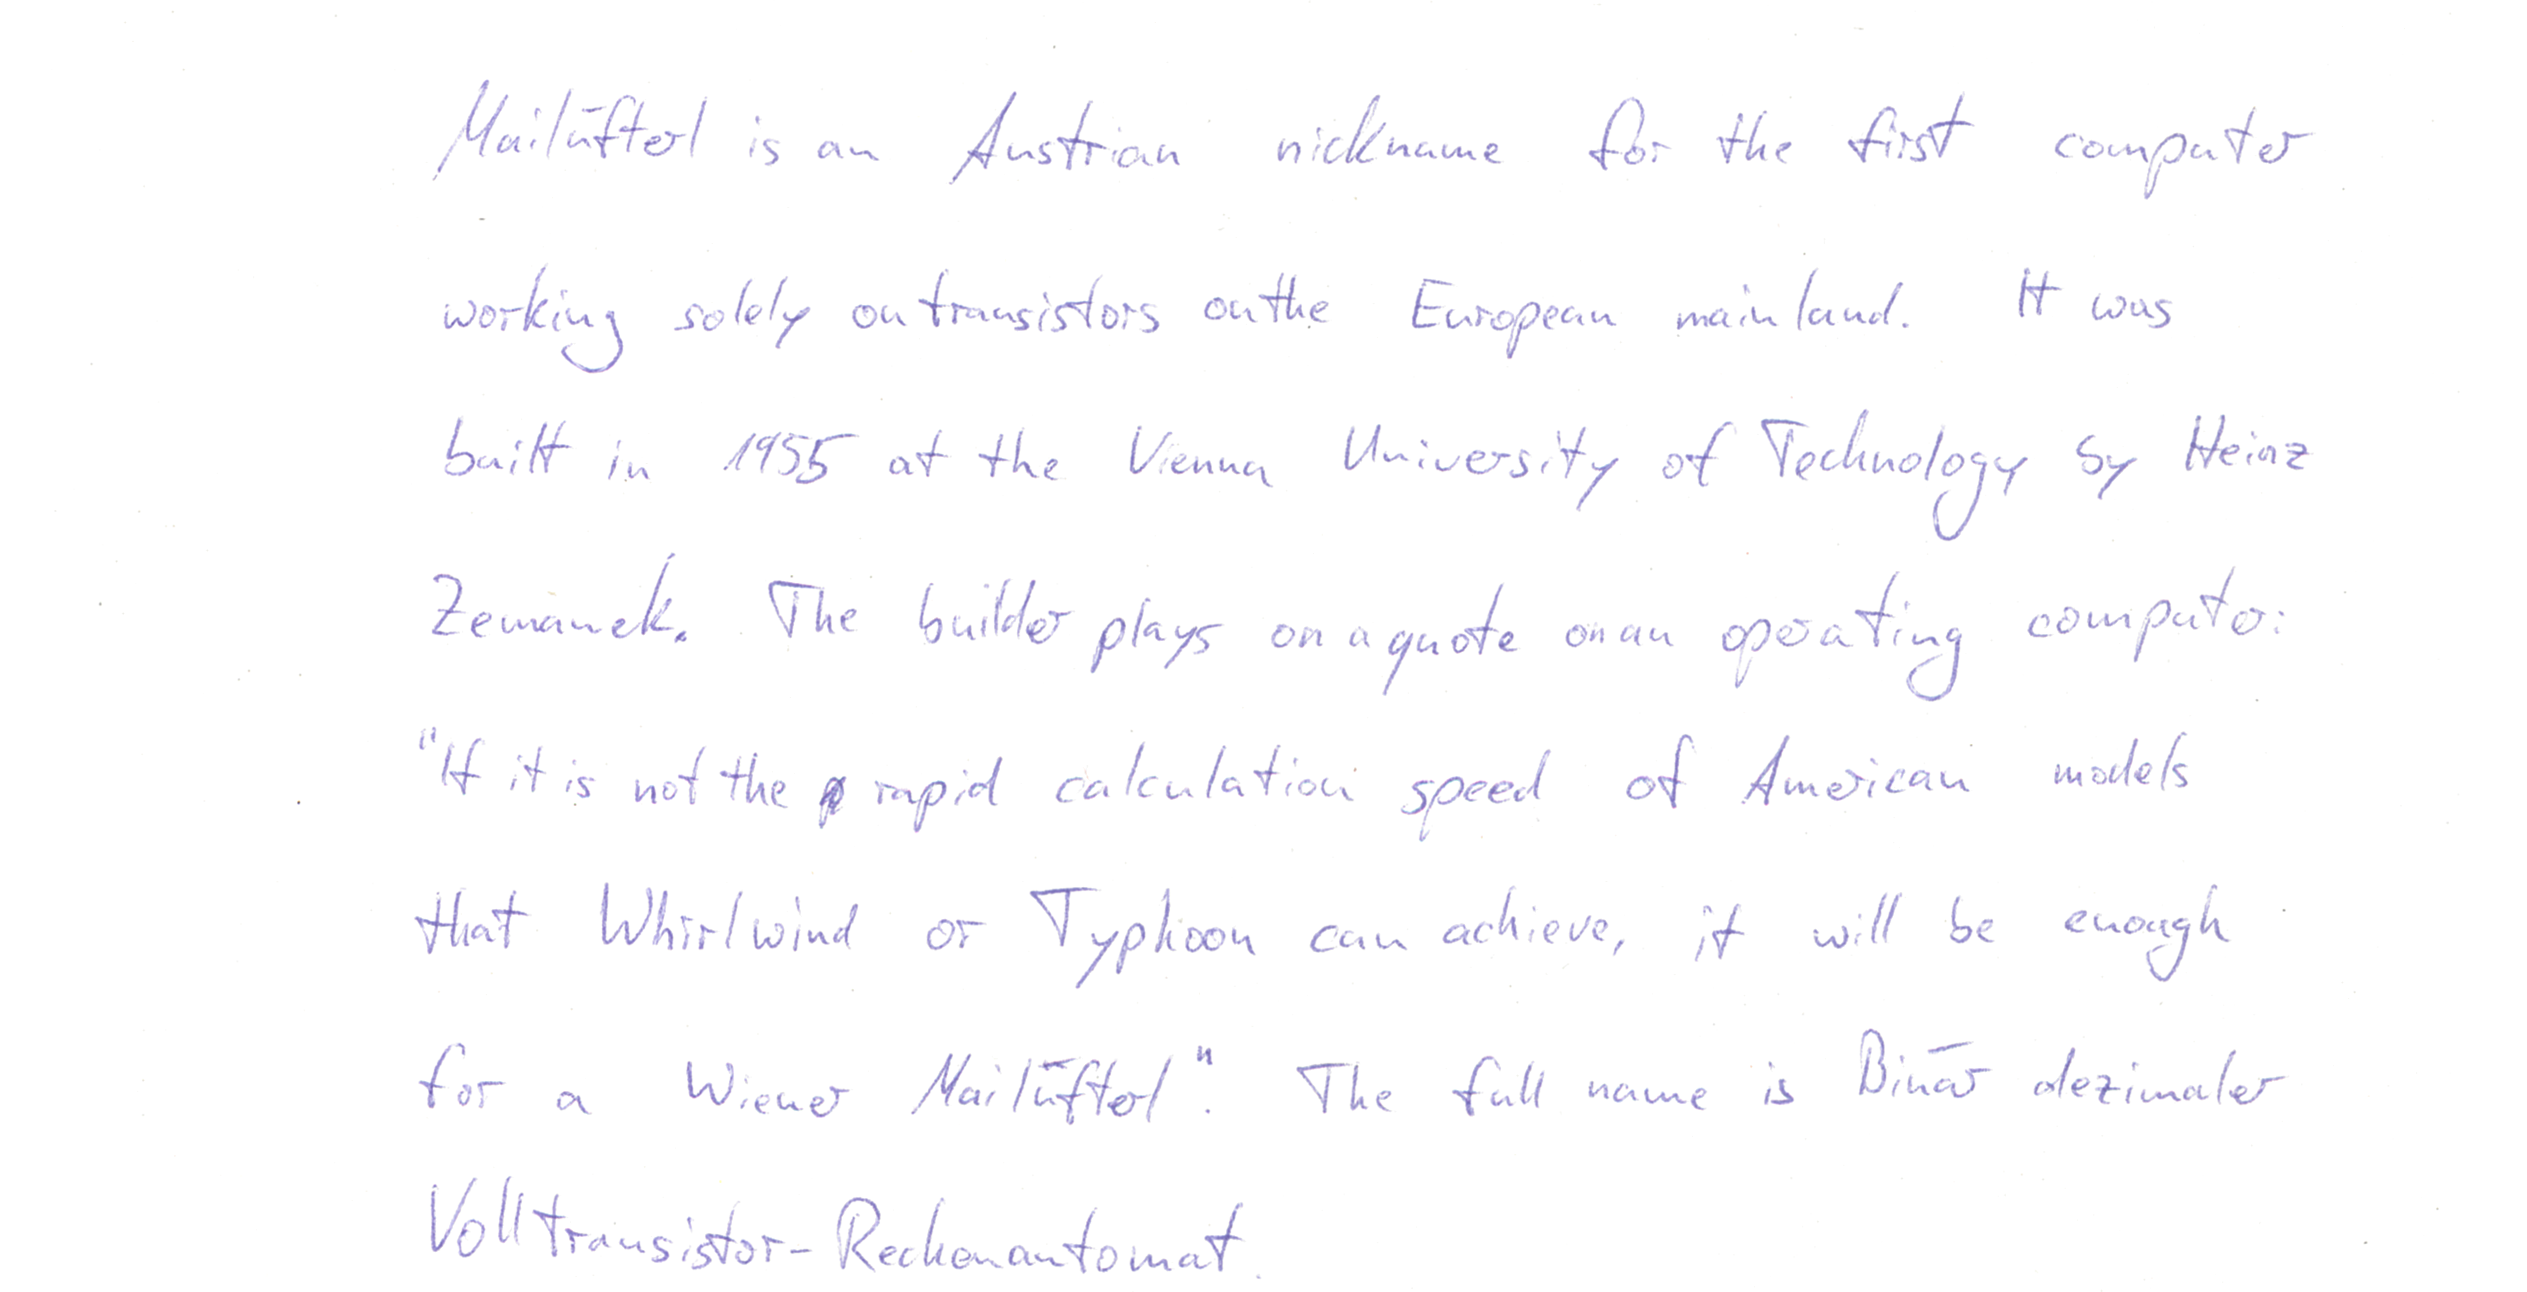 Mailüfterl is an Austrian nickname for the first computer
working solely on transistors on the European mainland. It was
built in 1955 at the Vienna University of Technology by Heinz
Zemanek. The builder plays on a quote on an operating computer:
"If it is not the rapid calculation speed of American models
that Whirlwind or Typhoon can achieve, it will be enough
for a Wiener Mailüfterl". The full name is Binär dezimaler
Volltransistor-Rechenautomat.